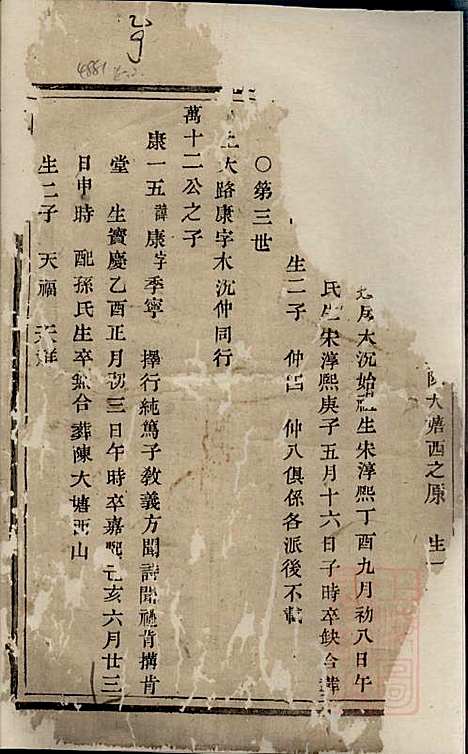 大塘西之原　生
大沉始祖生宋淳熙丁酉九月初八日午
氏生宋淳熙庚子五月十六日子時卒缺合葬
生二子　仲四　仲八俱係各派後不載
○第三世
大路康字木沉仲同行
萬十二公之子
康一五諱康字季寧　擇行純篤子教義方聞詩聞禮肯搆肯
堂　生寶慶乙酉正月初三日午時卒嘉熙己亥六月廿三
日申時　配孫氏生卒缺合葬陳大塘西山
生二子　天福　天祥
4881